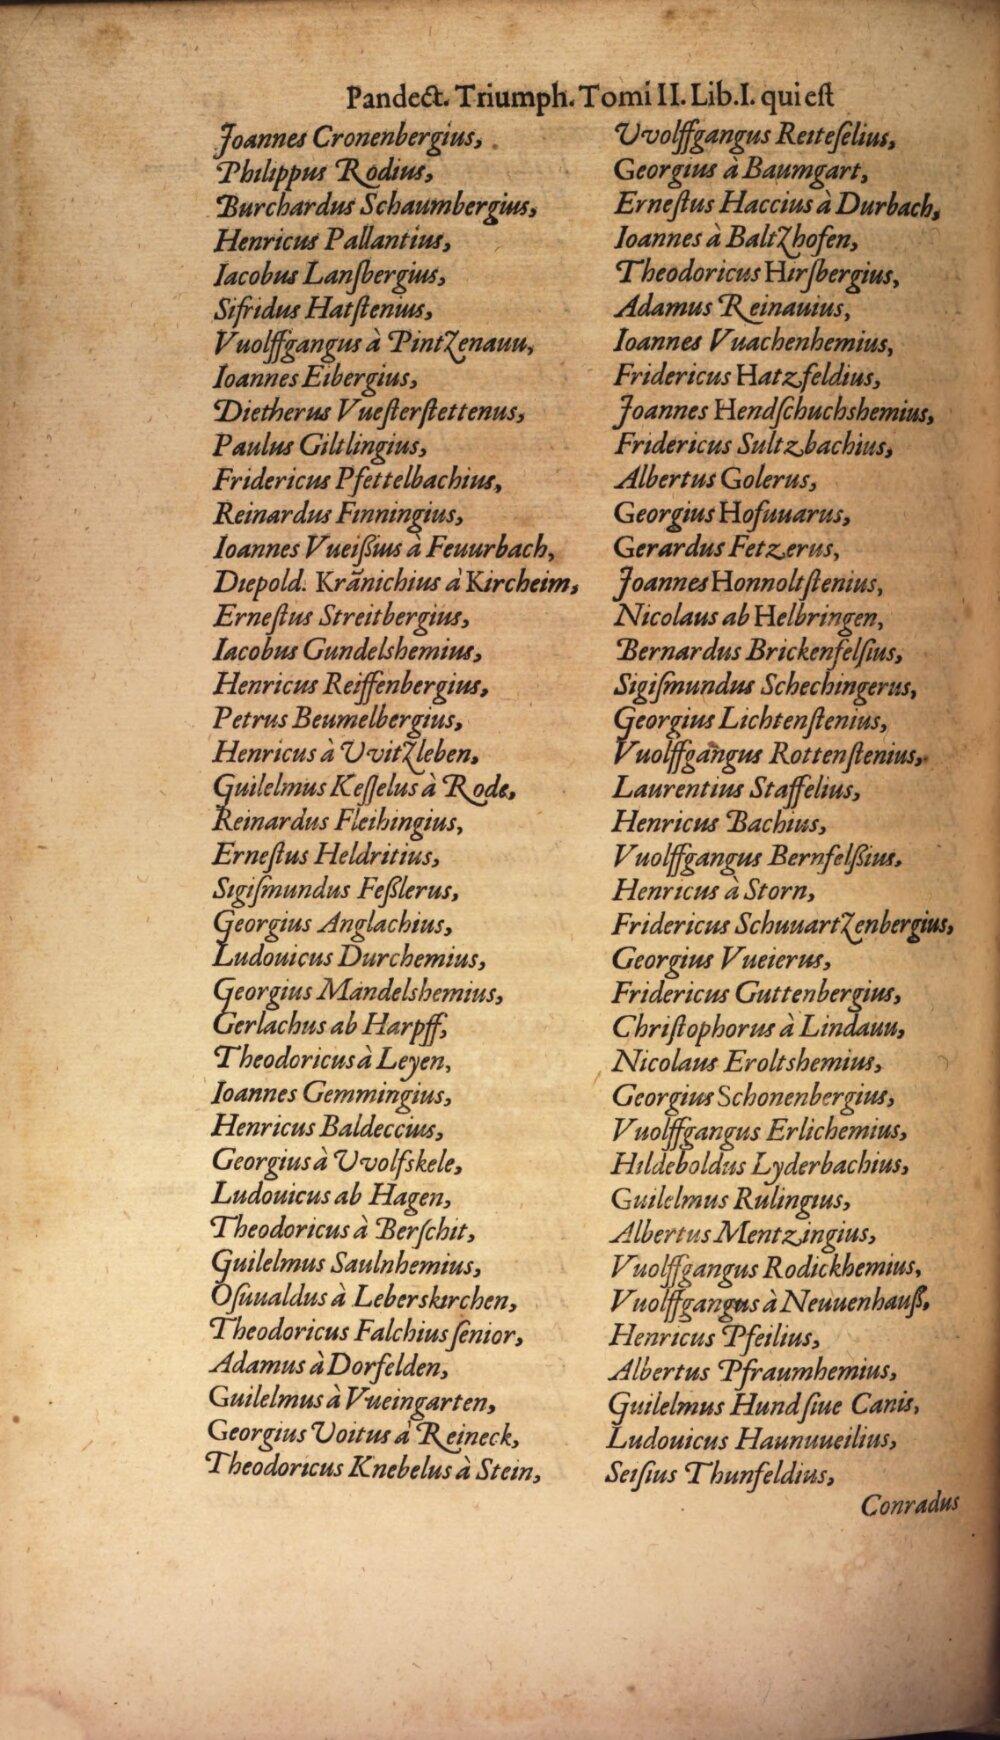 Pandect. Triumph. Tomi II. Lib. I. qui est
Joannes Cronenbergius,
Philippus Rodius,
Burchardus Schaumbergius,
Henricus Pallantius,
Iacobus Lanſbergius,
Sifridus Hatſtenius,
Vuolffgangus à Pintzenauu,
Ioannes Eibergius,
Dietherus Vueſterſtettenus,
Paulus Giltlingius,
Fridericus Pfettelbachius,
Reinardus Finningius,
Ioannes Vueißius à Feuurbach,
Diepold. Krãnichius à Kircheim,
Erneſtus Streitbergius,
Iacobus Gundelshemius,
Henricus Reiffenbergius,
Petrus Beumelbergius,
Henricus à Uvitzleben,
Guilelmus Keſſelus à Rode,
Reinardus Fleihingius,
Erneſtus Heldritius,
Sigiſmundus Feßlerus,
Georgius Anglachius,
Ludouicus Durchemius,
Georgius Mandelshemius,
Gerlachus ab Harpff,
Theodoricus à Leyen,
Ioannes Gemmingius,
Henricus Baldeccius,
Georgius à Uvolfskele,
Ludouicus ab Hagen,
Theodoricus à Berſchit,
Guilelmus Saulnhemius,
Oſuualdus à Leberskirchen,
Theodoricus Falchius ſenior,
Adamus à Dorfelden,
Guilelmus à Vueingarten,
Georgius Voitus à Reineck,
Theodoricus Knebelus à Stein,
Uvolffgangus Reiteſelius,
Georgius à Baumgart,
Erneſtus Haccius à Durbach,
Ioannes à Baltzhofen,
Theodoricus Hirſbergius,
Adamus Reinauius,
Ioannes Vuachenhemius,
Fridericus Hatzfeldius,
Joannes Hendſchuchshemius,
Fridericus Sultzbachius,
Albertus Golerus,
Georgius Hofuuarus,
Gerardus Fetzerus,
Joannes Honnoltſtenius,
Nicolaus ab Helbringen,
Bernardus Brickenfelſius,
Sigiſmundus Schechingerus,
Georgius Lichtenſtenius,
Vuolffgangus Rottenſtenius,
Laurentius Staffelius,
Henricus Bachius,
Vuolffgangus Bernfelßius,
Henricus à Storn,
Fridericus Schuuartzenbergius,
Georgius Vueierus,
Fridericus Guttenbergius,
Chriſtophorus à Lindauu,
Nicolaus Eroltshemius,
Georgius Schonenbergius,
Vuolffgangus Erlichemius,
Hildeboldus Lyderbachius,
Guilelmus Rulingius,
Albertus Mentzingius,
Vuolffgangus Rodickhemius,
Vuolffgangus à Neuuenhauß,
Henricus Pfeilius,
Albertus Pfraumhemius,
Guilelmus Hund ſiue Canis,
Ludouicus Haunuueilius,
Seiſius Thunfeldius,
Conradus